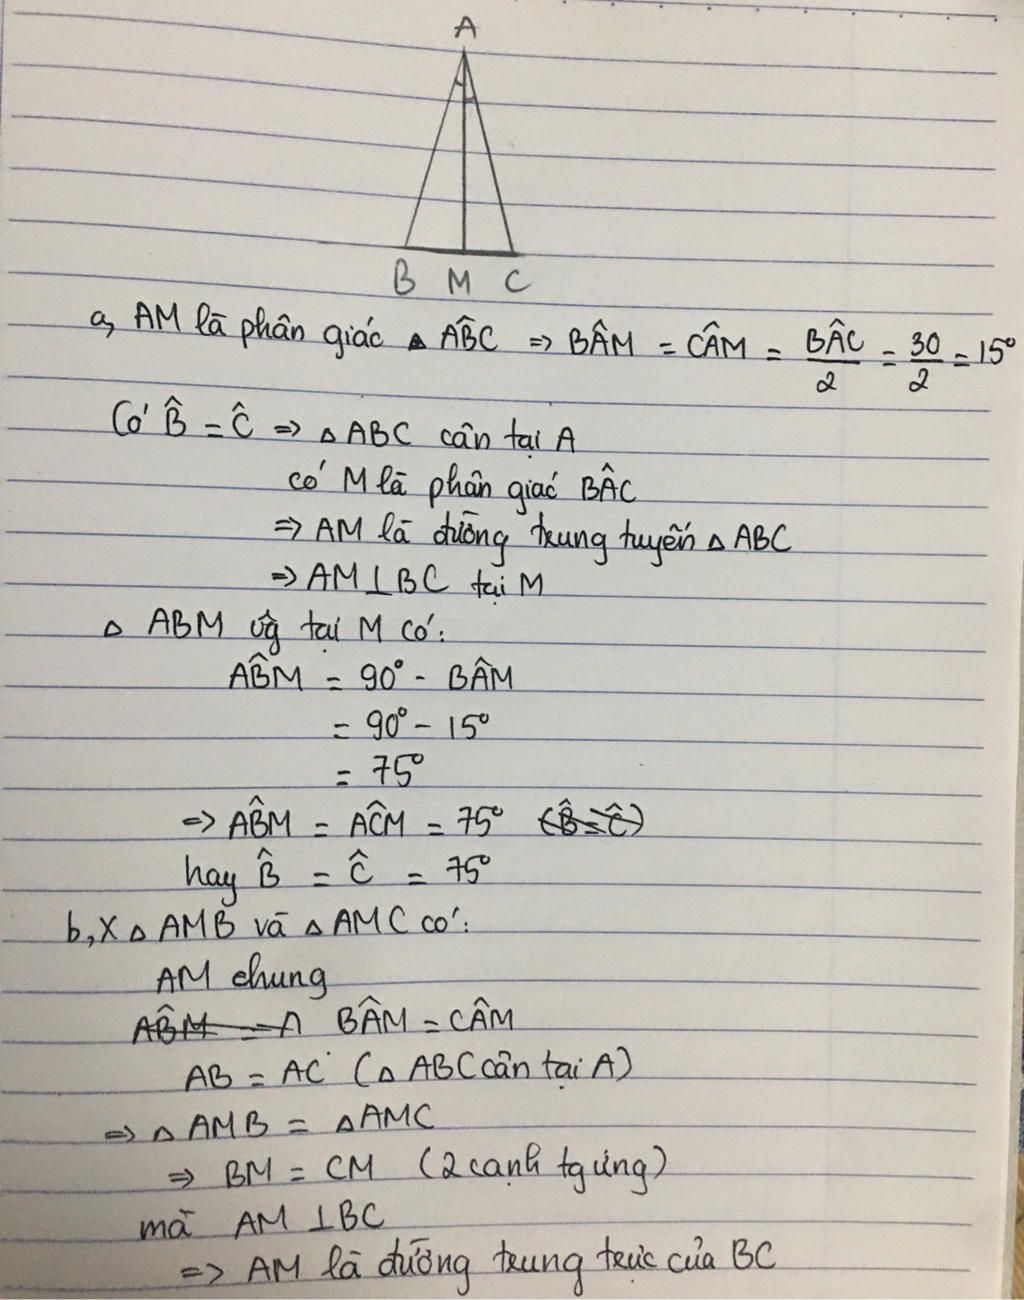 A
B M C
a, AM là phân giác △ ABC̑ => BÂM = CÂM = BÂC/2 = 30/2 = 15°
Có B̂ = Ĉ => △ ABC cân tại A
có M là phân giác BÂC
=> AM là đường trung tuyến △ ABC
=> AM ⊥ BC tại M
△ ABM vg tại M có:
AB̂M = 90° - BÂM
= 90° - 15°
= 75°
=> AB̂M = AĈM = 75° (B̂ = Ĉ)
hay B̂ = Ĉ = 75°
b, X △ AMB và △ AMC có:
AM chung
AB̂M = A BÂM = CÂM
AB = AC (△ ABC cân tại A)
=> △ AMB = △ AMC
=> BM = CM (2 cạnh tg ứng)
mà AM ⊥ BC
=> AM là đường trung trực của BC